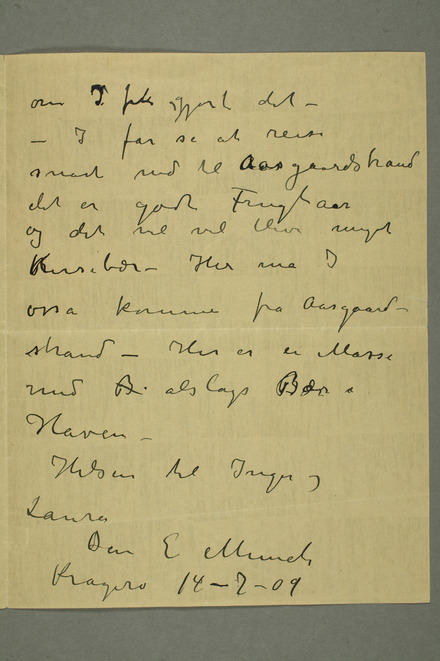 om I fik gjort det –
– I får se at reise
snart ned til Aasgaardstrand
det er godt Frugtaar
og det vil vel blive meget
Kirsebær – Her må I
også komme fra Aasgaard–
strand – Her er en Masse
med B alslags Bær i
Haven –
Hilsen til Inger og
Laura
Din E Munch
Kragerø 14–7–09